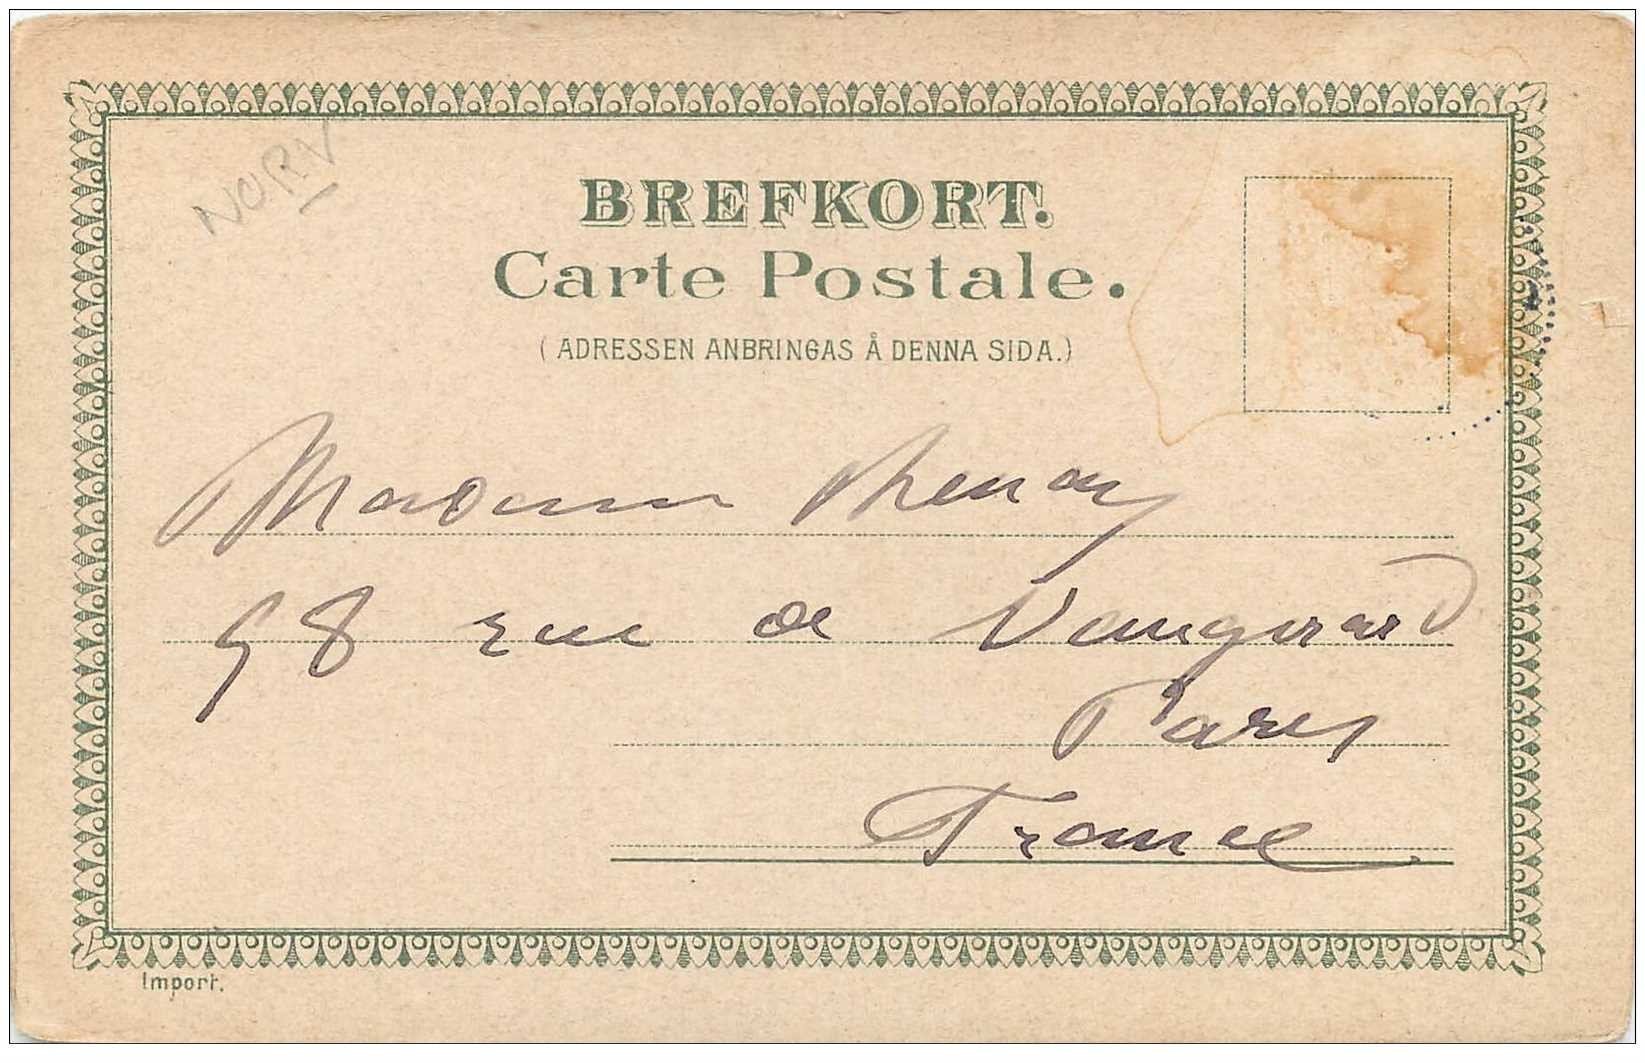 NORV
BREFKORT.
Carte Postale.
(ADRESSEN ANBRINGAS Å DENNA SIDA.)
Madame
98 rue de Vaugirard
Paris
France
Import.